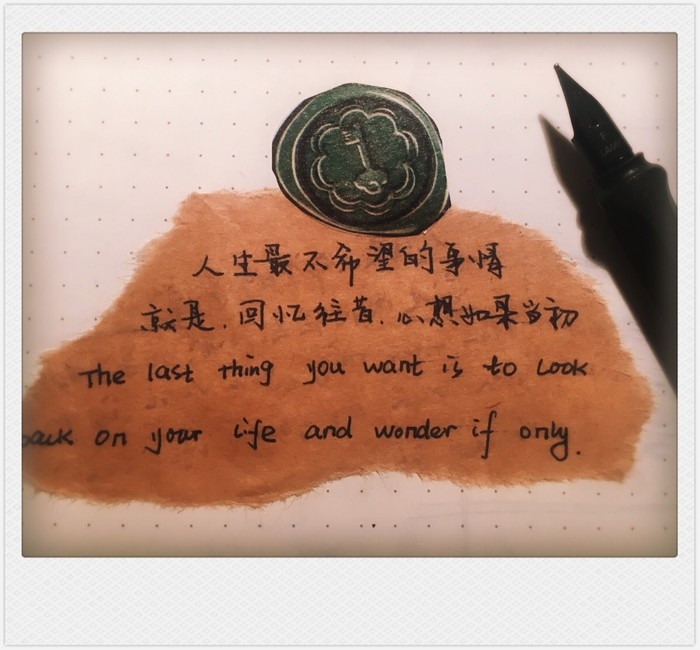 人生最不希望的事情
就是,回忆往昔,心想如果当初
The last thing you want is to look
back on your life and wonder if only.